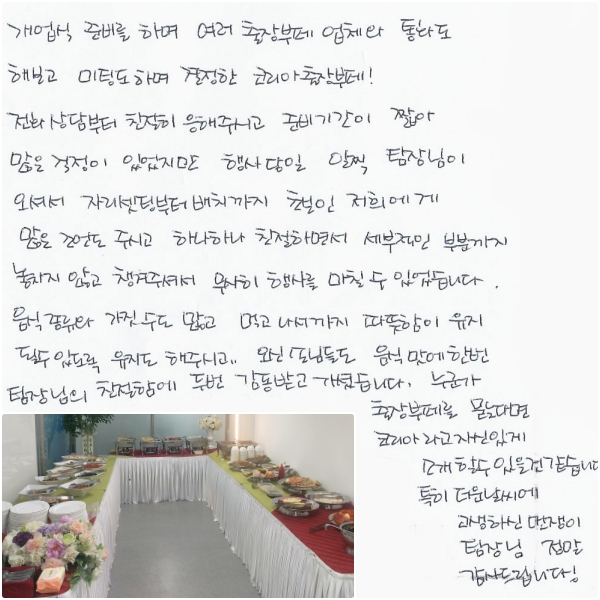 개업식 준비를 하며 여러 출장부페 업체와 통화도
해보고 미팅도하며 결정한 코리아출장부페!
전화상담부터 친절히 응해주시고 준비기간이 짧아
많은 걱정이 있었지만 행사당일 일찍 팀장님이
오셔서 자리셋팅부터 배치까지 초보인 저희에게
많은 조언도 주시고 하나하나 친절하면서 세부적인 부분까지
놓치지 않고 챙겨주셔서 무사히 행사를 마칠 수 있었습니다.
음식종류와 가짓수도 많고 먹고 나서까지 따뜻함이 유지
될수 있도록 유지도 해주시고.. 오신 손님들도 음식 맛에 한번
팀장님의 친절함에 두번 감동받고 가셨습니다. 누군가
출장부페를 묻는다면
코리아라고 자신있게
소개할수 있을것 같습니다
특히 더운날씨에
고생하신 팀장님
정말
감사드립니다!